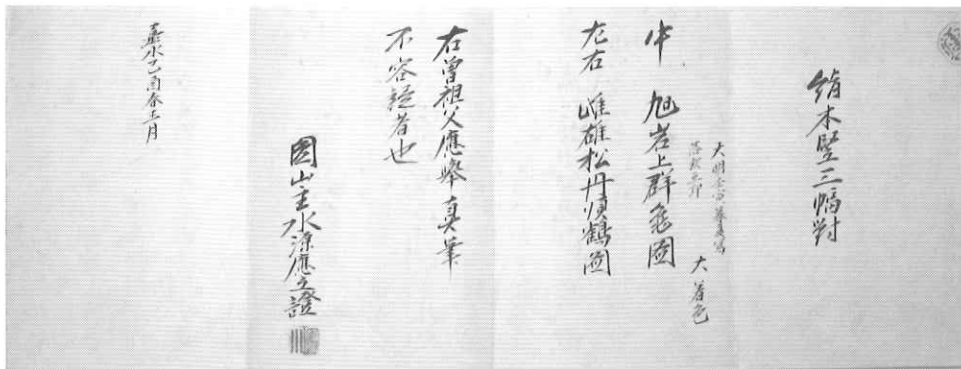 絹本竪三幅對
大着色
中 旭岩上群龜圖
左右 雌雄松丹頂鶴圖
右曾祖父應舉真筆
不容疑者也
圓山主水源應立證
嘉永己酉春月